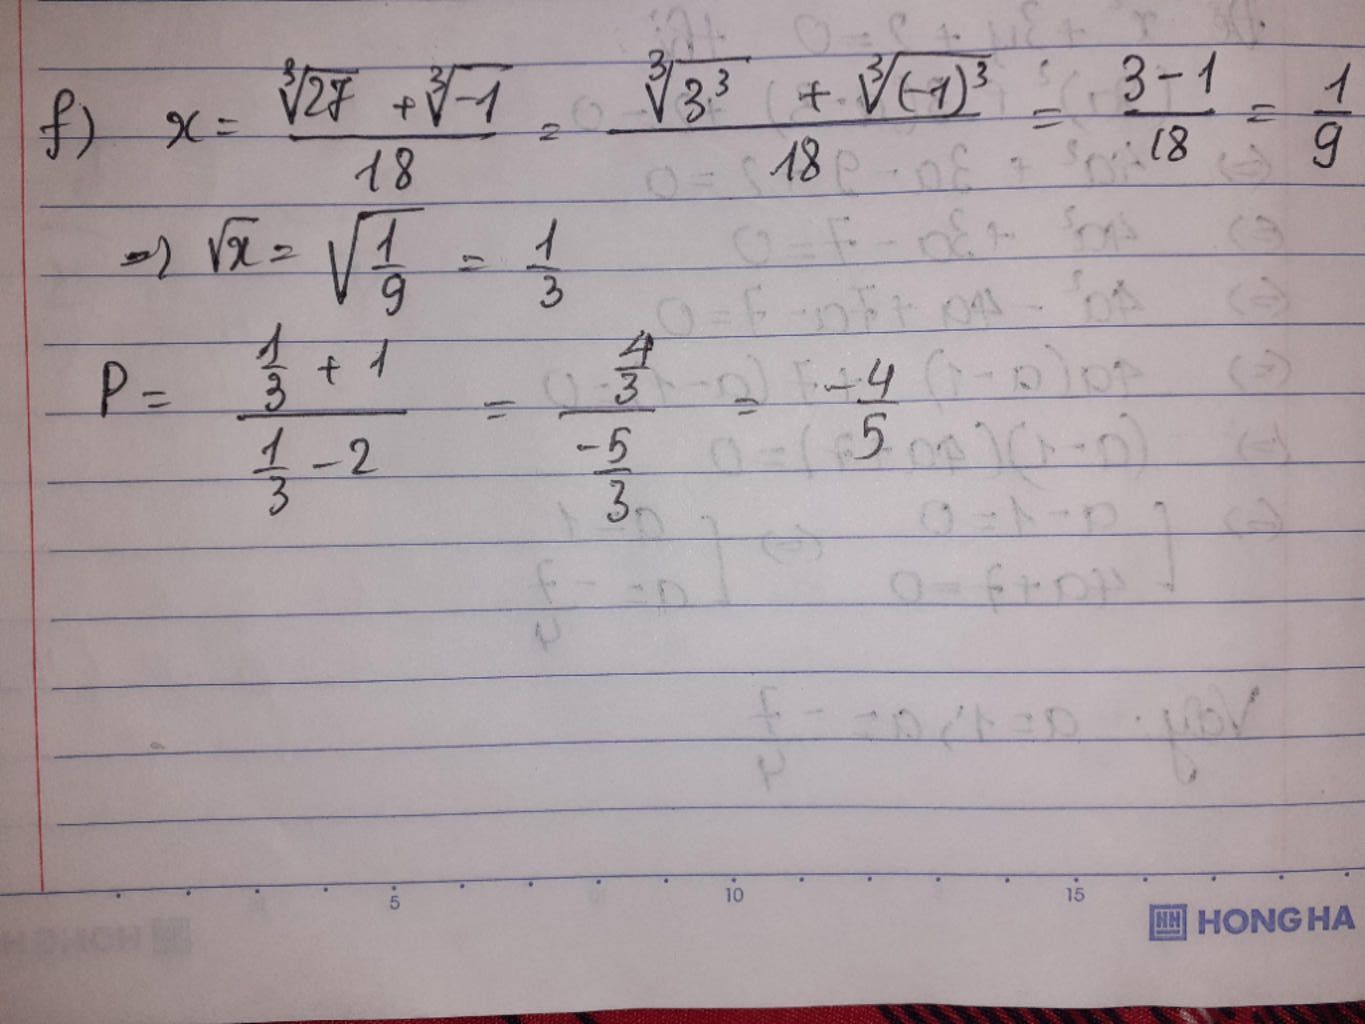 f) x = (∛27 + ∛-1)/18 = (∛3³ + ∛(-1)³)/18 = (3-1)/18 = 1/9
=> √x = √(1/9) = 1/3
P = (1/3 + 1)/(1/3 - 2) = (4/3)/(-5/3) = -4/5
5 10 15
HONG HA